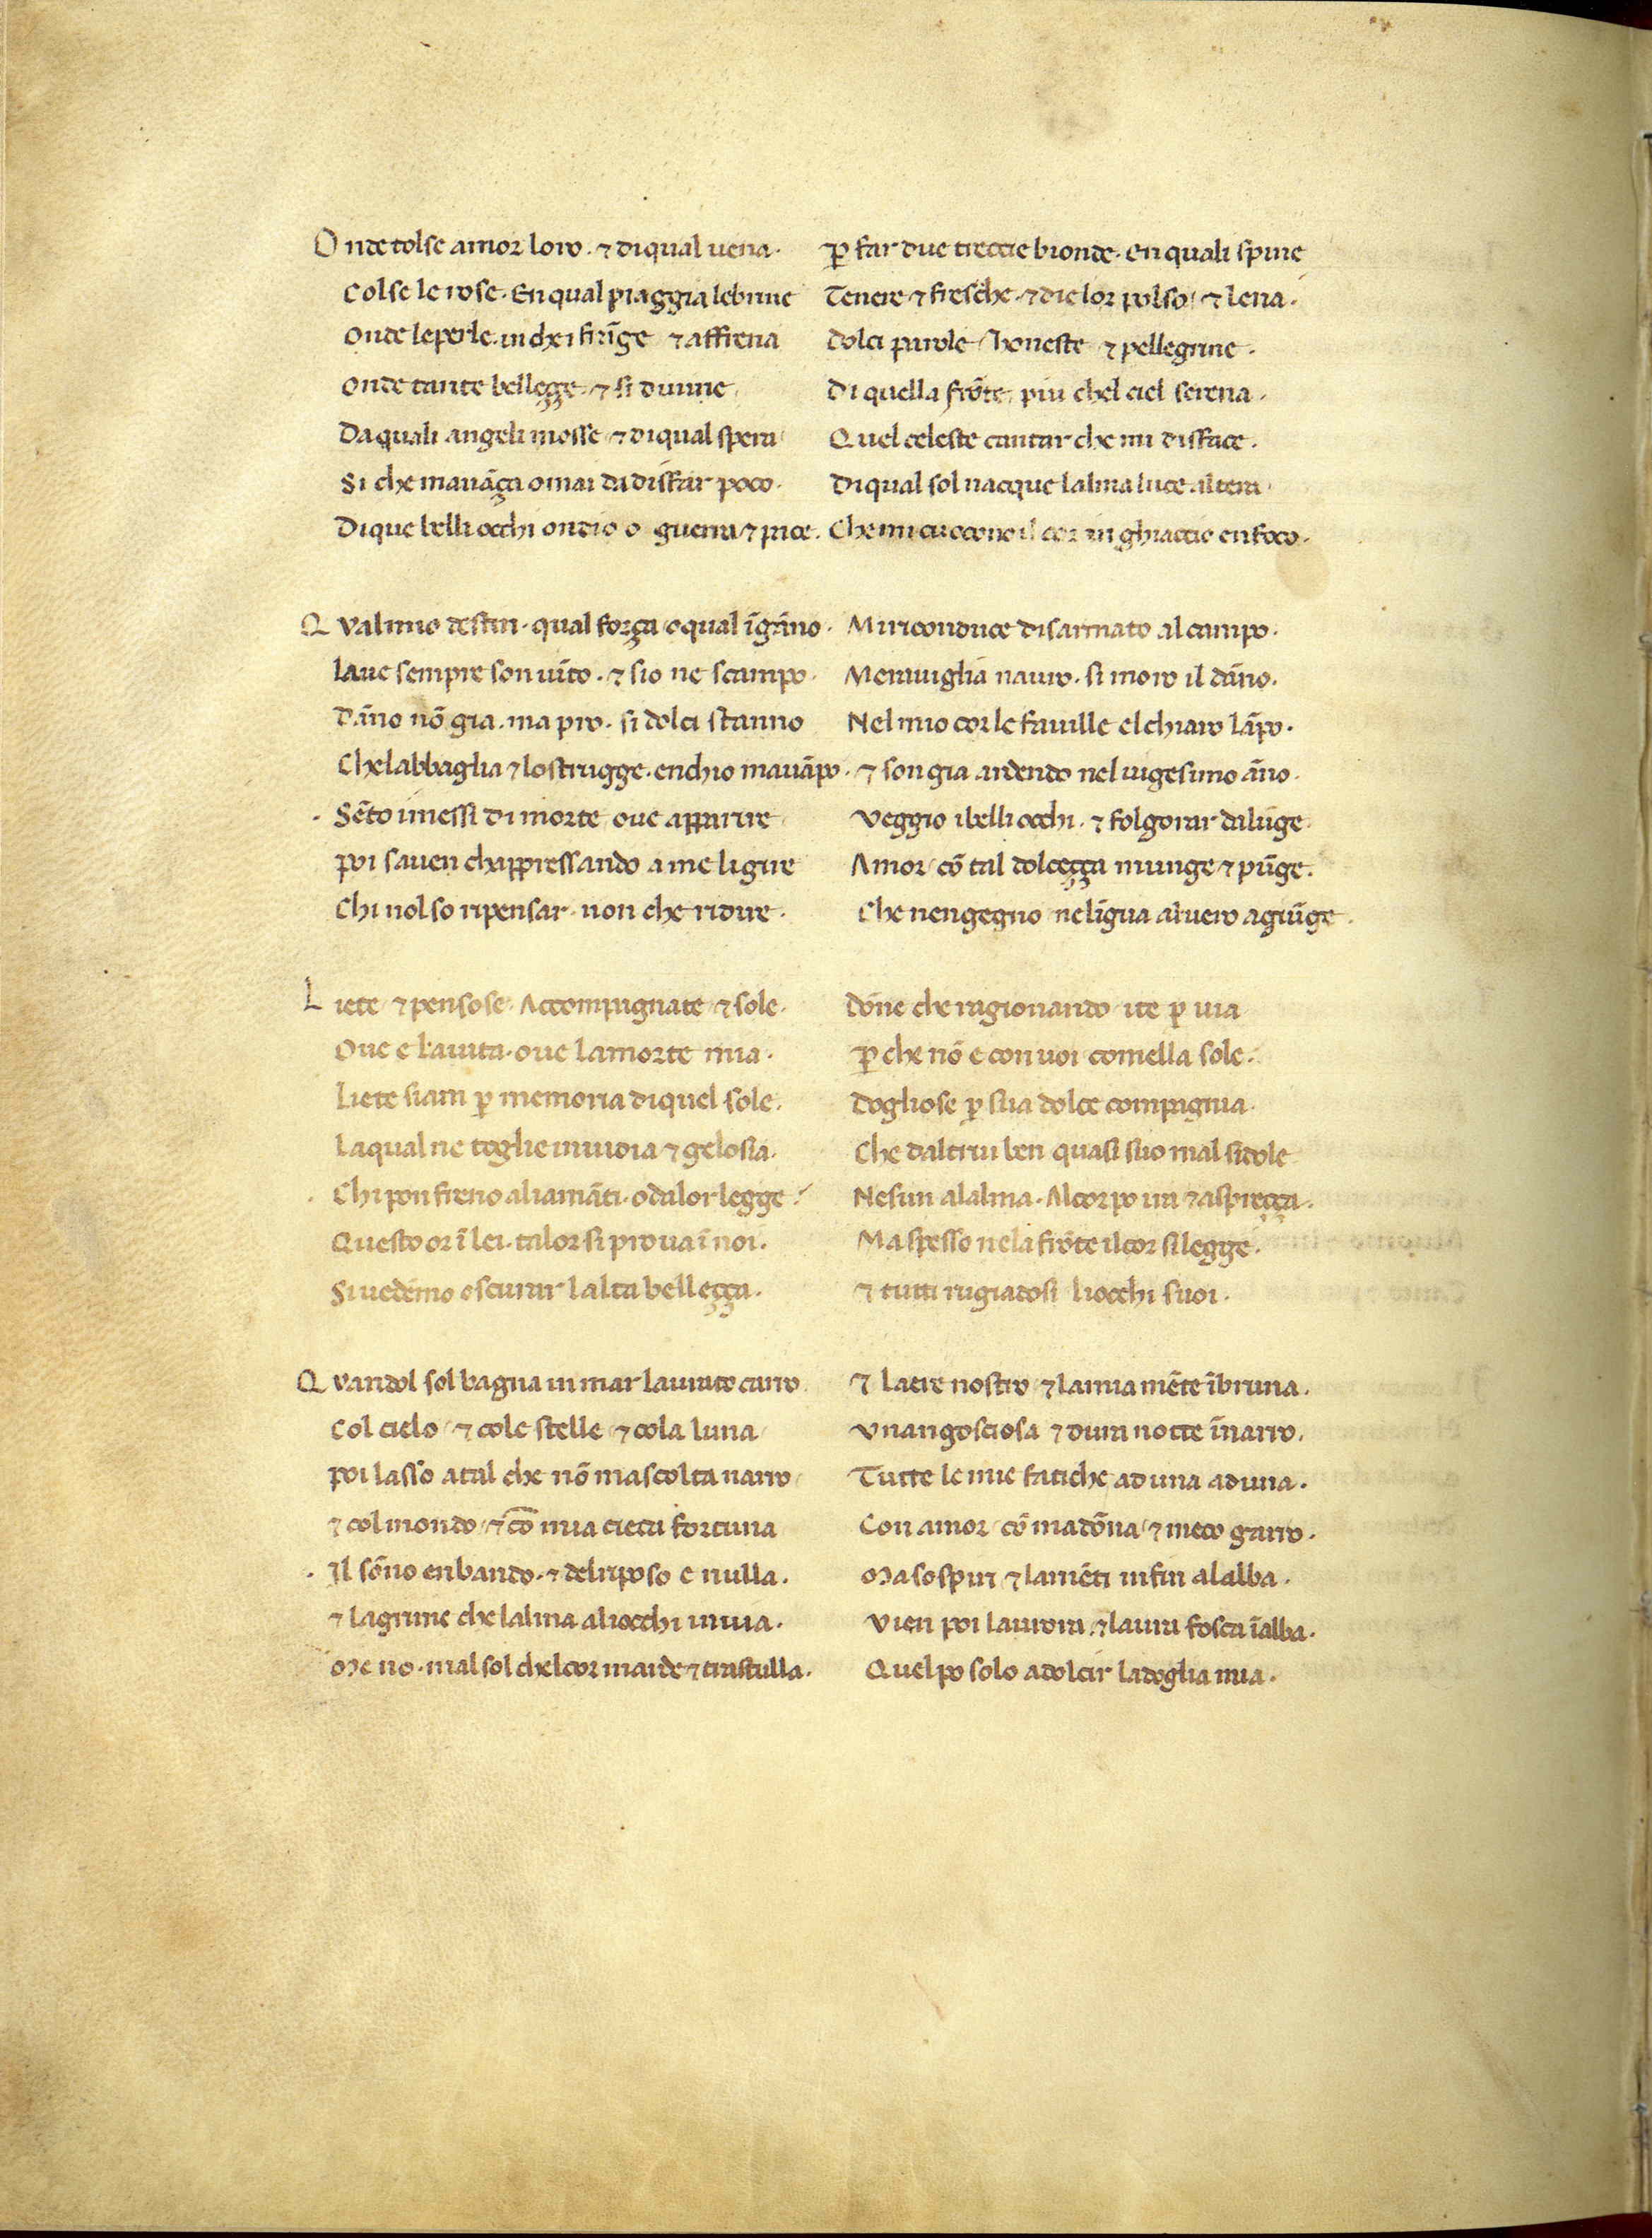 Onde tolse amor loro. ⁊ diqual uena. ꝑ far due treccie bionde. en quali spine
Colse le rose. En qual piaggia le brine Tenere ⁊ fresche. ⁊ die lor polso ⁊ lena.
Onde le perle. in chei frīge ⁊ affrena dolci parole honeste ⁊ pellegrine.
onde tante belleçe. ⁊ si diuine Di quella frōte piu chel ciel serena.
Da quali angeli mosse ⁊ di qual spera Quel celeste cantar che mi disface.
Si che mauāça omai da disfar poco. Di qual sol nacque lalma luce altera
Di que belli occhi ondio o guerra ⁊ pace. Che mi cuocono il cor in ghiaccio en foco.
Qual mio destin. qual força o qual īgāno. Mi riconduce disarmato al campo.
laue sempre son uīto. ⁊ sio ne scampo. Merauiglia nauro. si moro il dāno.
Dāno nō gia. ma pro. si dolci stanno Nel mio cor le fauille el chiaro lāpo.
Chel abbaglia ⁊ lo strugge. enchio mauāpo. ⁊ son gia ardendo nel uigesimo āno.
Sēto i messi di morte oue apparire veggio i belli occhi. ⁊ folgorar da lūge.
poi sauen chappressando a me li gire Amor cō tal dolceçça munge ⁊ pūge.
Chi nol so ripensar. non che ridire. Che nengegno ne līgua al uero agiūge.
Liete ⁊ pensose. Accompagnate ⁊ sole. dōne che ragionando ite ꝑ uia
Oue e la uita. oue la morte mia. ꝑ che nō e con uoi comella sole.
Liete siam ꝑ memoria di quel sole. dogliose ꝑ sua dolce compagnia.
Laqual ne toglie inuidia ⁊ gelosia. Che daltrui ben quasi suo mal si dole
Chi pon freno a li amāti. o da lor legge Nesun alalma. Al corpo ira ⁊ aspreçça.
Questo or ī lei. talor si proua ī noi. Ma spesso ne la frōte il cor si legge.
Si uedemo oscurar lalta belleçça. ⁊ tutti rugiadosi li occhi suoi.
Quandol sol bagna in mar laurato carro. ⁊ laere nostro ⁊ la mia mēte ībruna.
Col cielo ⁊ cole stelle ⁊ cola luna vnangosciosa ⁊ dura notte īnarro.
poi lasso a tal che nō mascolta narro Tutte le mie fatiche ad una ad una.
⁊ col mondo ⁊ cō mia cieca fortuna Con amor cō madōna ⁊ meco garro.
Il sōno en bando. ⁊ del riposo e nulla. Ma sospiri ⁊ lamēti infin alalba.
⁊ lagrime che lalma a li occhi inuia. vien poi laurora ⁊ laura fosca īalba.
Me no. mal sol chel cor marde ⁊ trastulla. Quel po solo adolcir la doglia mia.